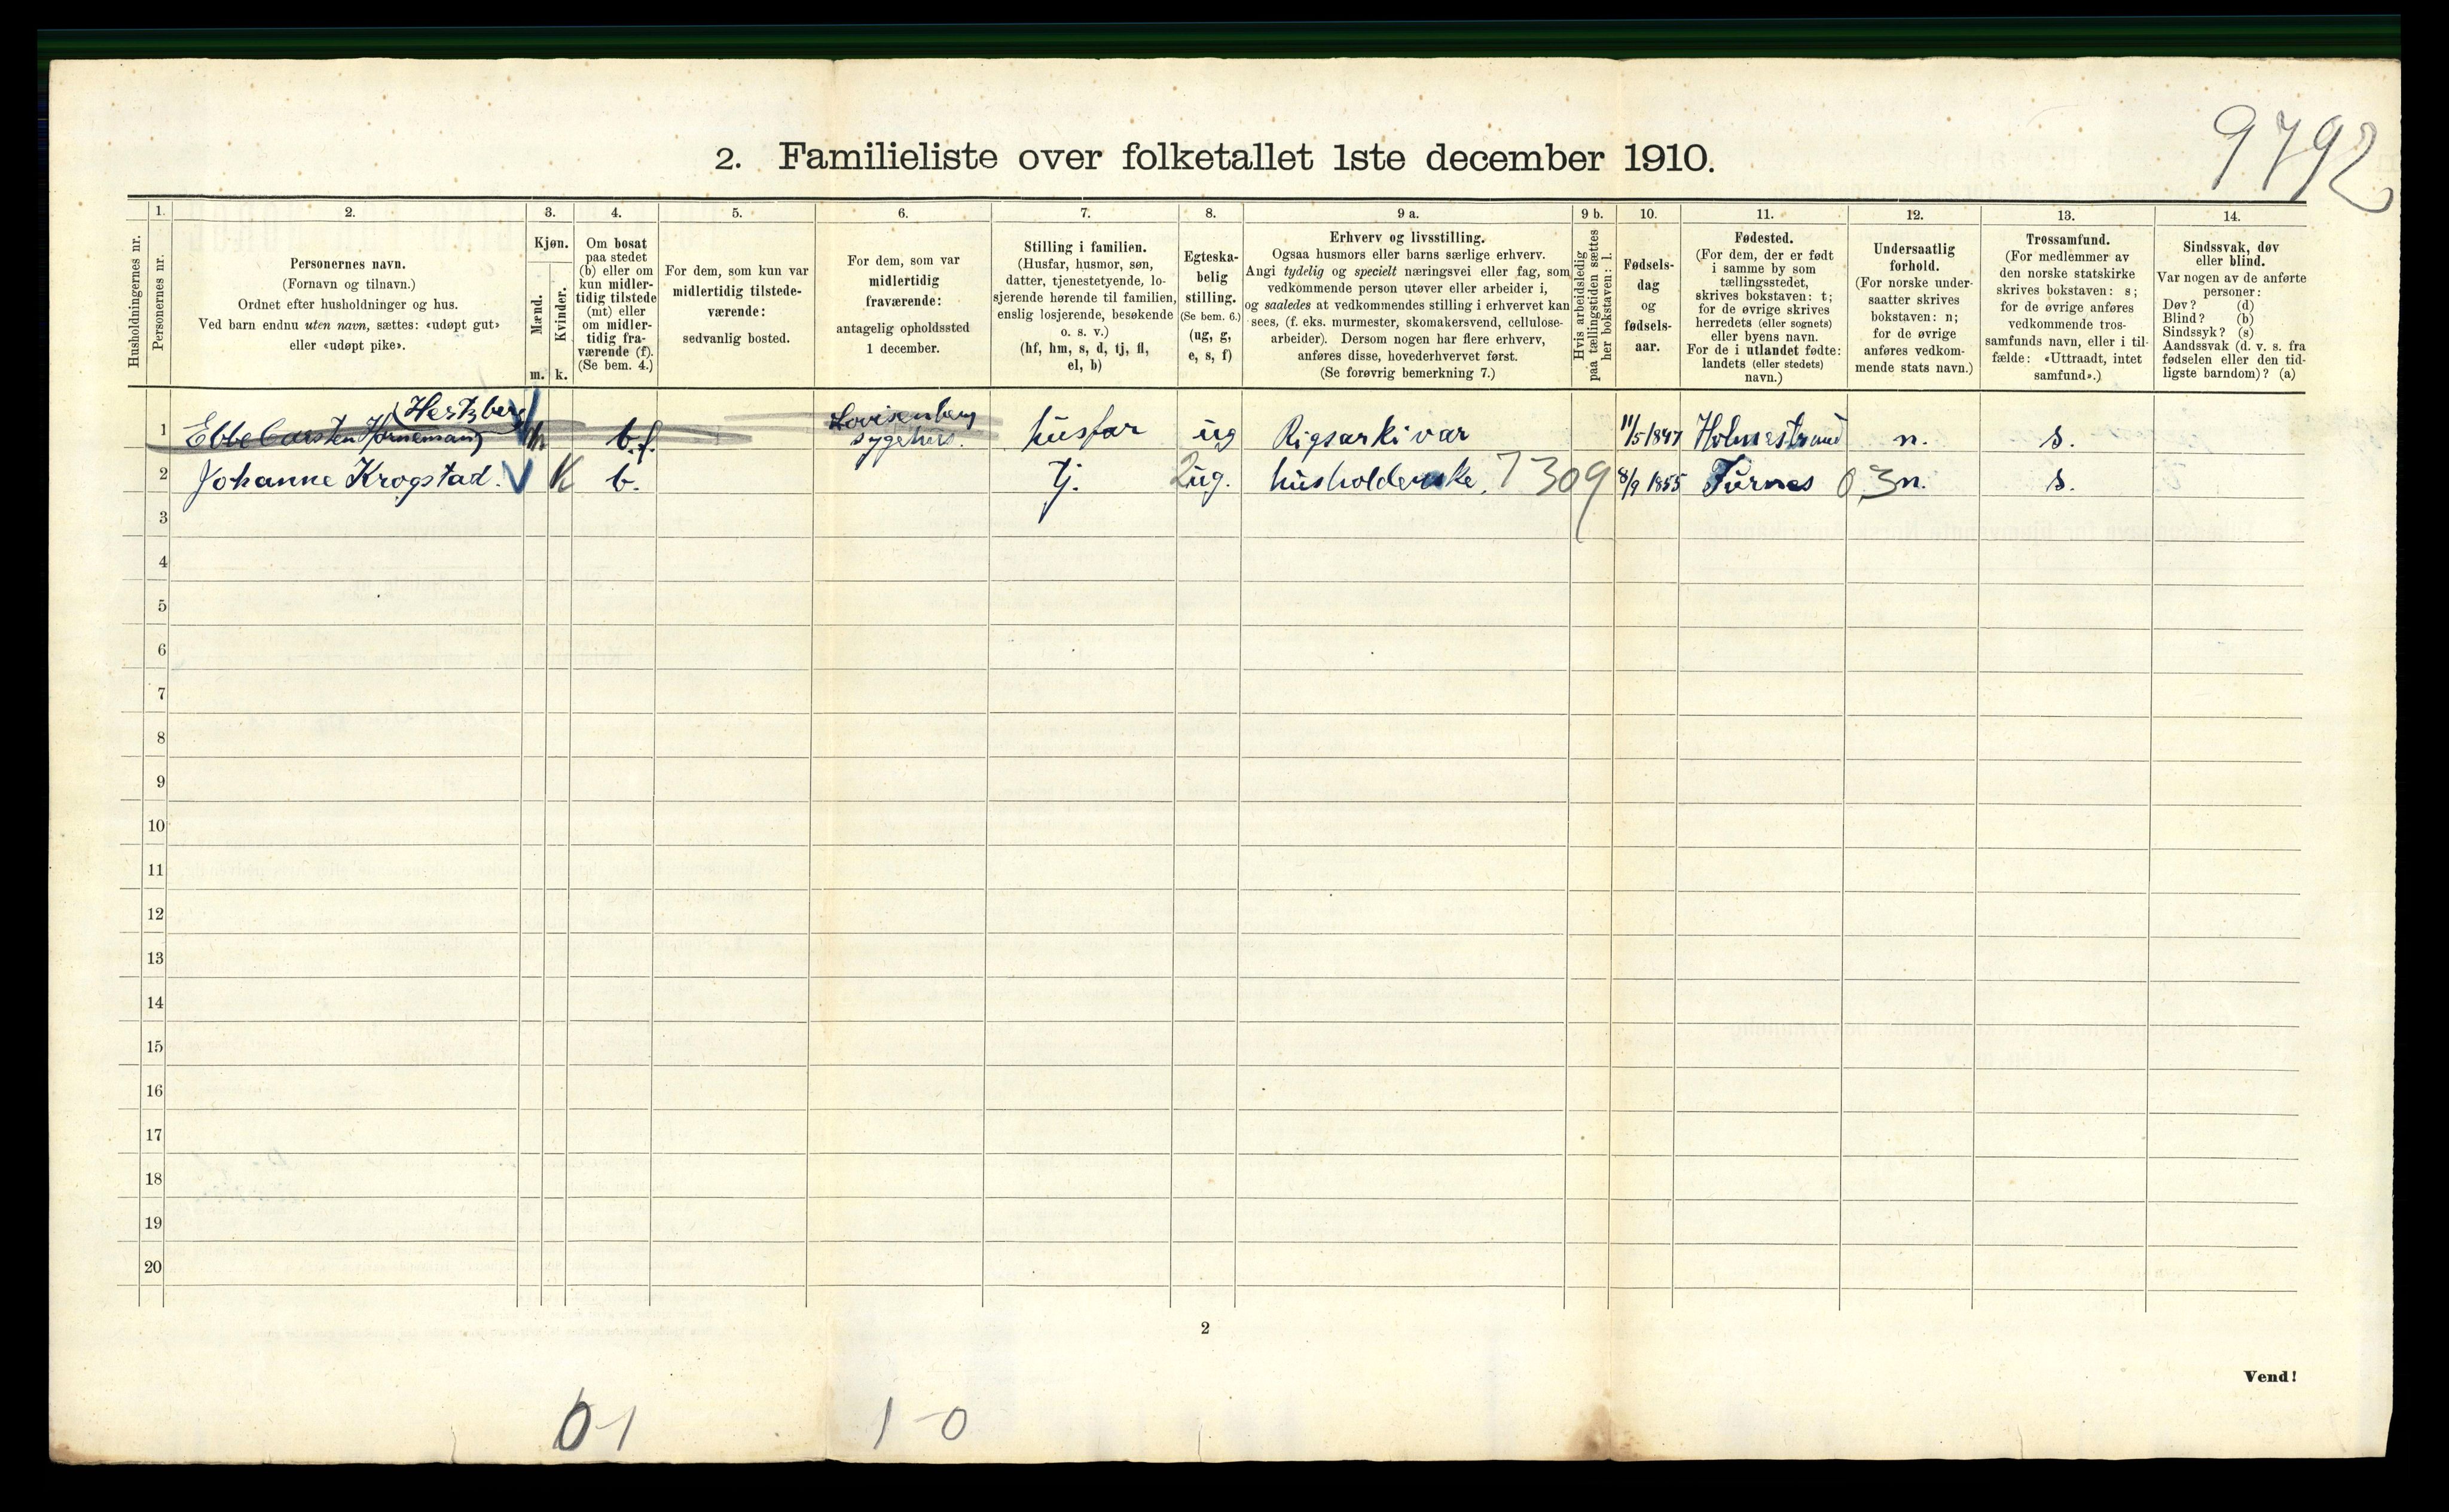 9792
2. Familieliste over folketallet 1ste december 1910.
Husholdningernes nr.
1.
Personernes nr.
2.
Personernes navn.
(Fornavn og tilnavn.)
Ordnet efter husholdninger og hus.
Ved barn endnu uten navn, sættes: «udøpt gut»
eller «udøpt pike».
3.
Kjøn.
Mænd.
Kvinder.
m. k.
4.
Om bosat
paa stedet
(b) eller om
kun midler-
tidig tilstede
(mt) eller
om midler-
tidig fra-
værende (f).
(Se bem. 4.)
5.
For dem, som kun var
midlertidig tilstede-
værende:
sedvanlig bosted.
6.
For dem, som var
midlertidig
fraværende:
antagelig opholdssted
1 december.
7.
Stilling i familien.
(Husfar, husmor, søn,
datter, tjenestetyende, lo-
sjerende hørende til familien,
enslig losjerende, besøkende
o. s. v.)
(hf, hm, s, d, tj, fl,
el, b)
8.
Egteska-
belig
stilling.
(Se bem. 6.)
(ug, g,
e, s, f)
9 a.
Erhverv og livsstilling.
Ogsaa husmors eller barns særlige erhverv.
Angi tydelig og specielt næringsvei eller fag, som
vedkommende person utøver eller arbeider i,
og saaledes at vedkommendes stilling i erhvervet kan
sees, (f. eks. murmester, skomakersvend, cellulose-
arbeider). Dersom nogen har flere erhverv,
anføres disse, hovederhvervet først.
(Se forøvrig bemerkning 7.)
9 b.
Hvis arbeidsledig
paa tællingstiden sættes
her bokstaven: l.
10.
Fødsels-
dag
og
fødsels-
aar.
11.
Fødested.
(For dem, der er født
i samme by som
tællingsstedet,
skrives bokstaven: t;
for de øvrige skrives
herredets (eller sognets)
eller byens navn.
For de i utlandet fødte:
landets (eller stedets)
navn.)
12.
Undersaatlig
forhold.
(For norske under-
saatter skrives
bokstaven: n;
for de øvrige
anføres vedkom-
mende stats navn.)
13.
Trossamfund.
(For medlemmer av
den norske statskirke
skrives bokstaven: s;
for de øvrige anføres
vedkommende tros-
samfunds navn, eller i til-
fælde: «Uttraadt, intet
samfund».)
14.
Sindssvak, døv
eller blind.
Var nogen av de anførte
personer:
Døv? (d)
Blind? (b)
Sindssyk? (s)
Aandssvak (d. v. s. fra
fødselen eller den tid-
ligste barndom)? (a)
(Hertzberg
1 Ebbe Carsten Hornemann m b.f. Lovisenberg sygehus. husfar ug Rigsarkivar 11/5 1847 Holmestrand n. s.
2 Johanne Krogstad. K b. tj. 2 ug. husholderske. 7309 8/9 1855 Furnes 03 n. s.
3
4
5
6
7
8
9
10
11
12
13
14
15
16
17
18
19
20
2
Vend!
0-1 1-0